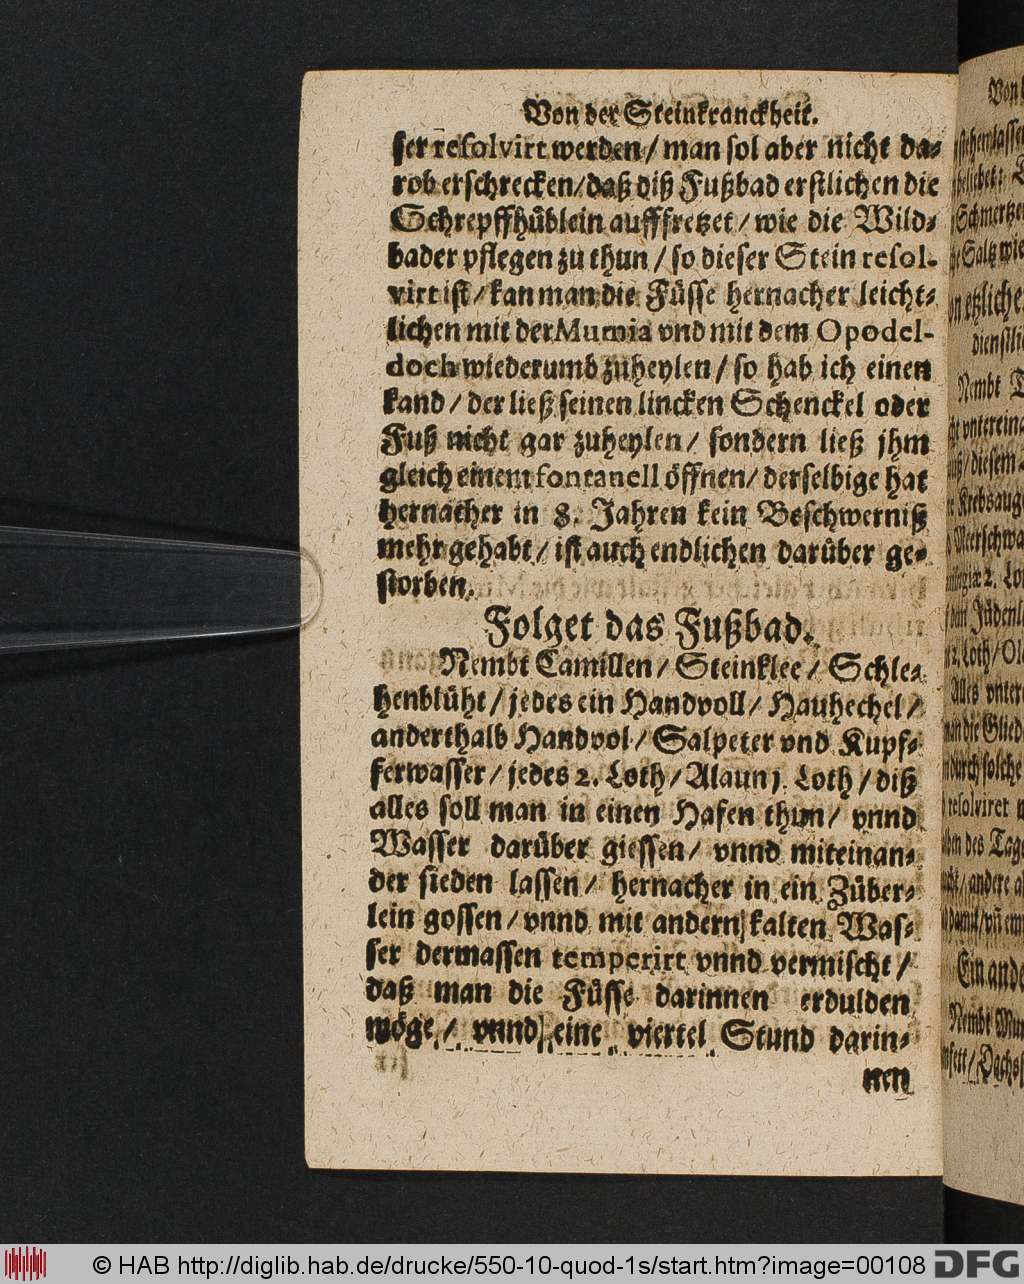 Von der Steinkranckheit.
ser resolvirt werden / man sol aber nicht da⸗
rob erschrecken / daß diß Fußbad erstlichen die
Schrepffhüblein aufffretzet / wie die Wild⸗
bader pflegen zu thun / so dieser Stein resol-
virt ist / kan man die Füsse hernacher leicht⸗
lichen mit der Mumia vnd mit dem Opodel-
doch wiederumb zuheylen / so hab ich einen
kand / der ließ seinen lincken Schenckel oder
Fuß nicht gar zuheylen / sondern ließ jhm
gleich einem fontanell öffnen / derselbige hat
hernacher in 8. Jahren kein Beschwerniß
mehr gehabt / ist auch endlichen darüber ge⸗
storben.
Folget das Fußbad.
Nembt Camillen / Steinklee / Schle⸗
henblüht / jedes ein Handvoll / Hauhechel /
anderthalb Handvol / Salpeter vnd Kupf⸗
ferwasser / jedes 2. Loth / Alaun 1. Loth / diß
alles soll man in einen Hafen thun / vnnd
Wasser darüber giessen / vnnd miteinan⸗
der sieden lassen / hernacher in ein Züber⸗
lein gossen / vnnd mit andern kalten Was⸗
ser dermassen temperirt vnnd vermischt /
daß man die Füsse darinnen erdulden
möge / vnnd eine viertel Stund darin⸗
nen
© HAB http://diglib.hab.de/drucke/550-10-quod-1s/start.htm?image=00108
DFG